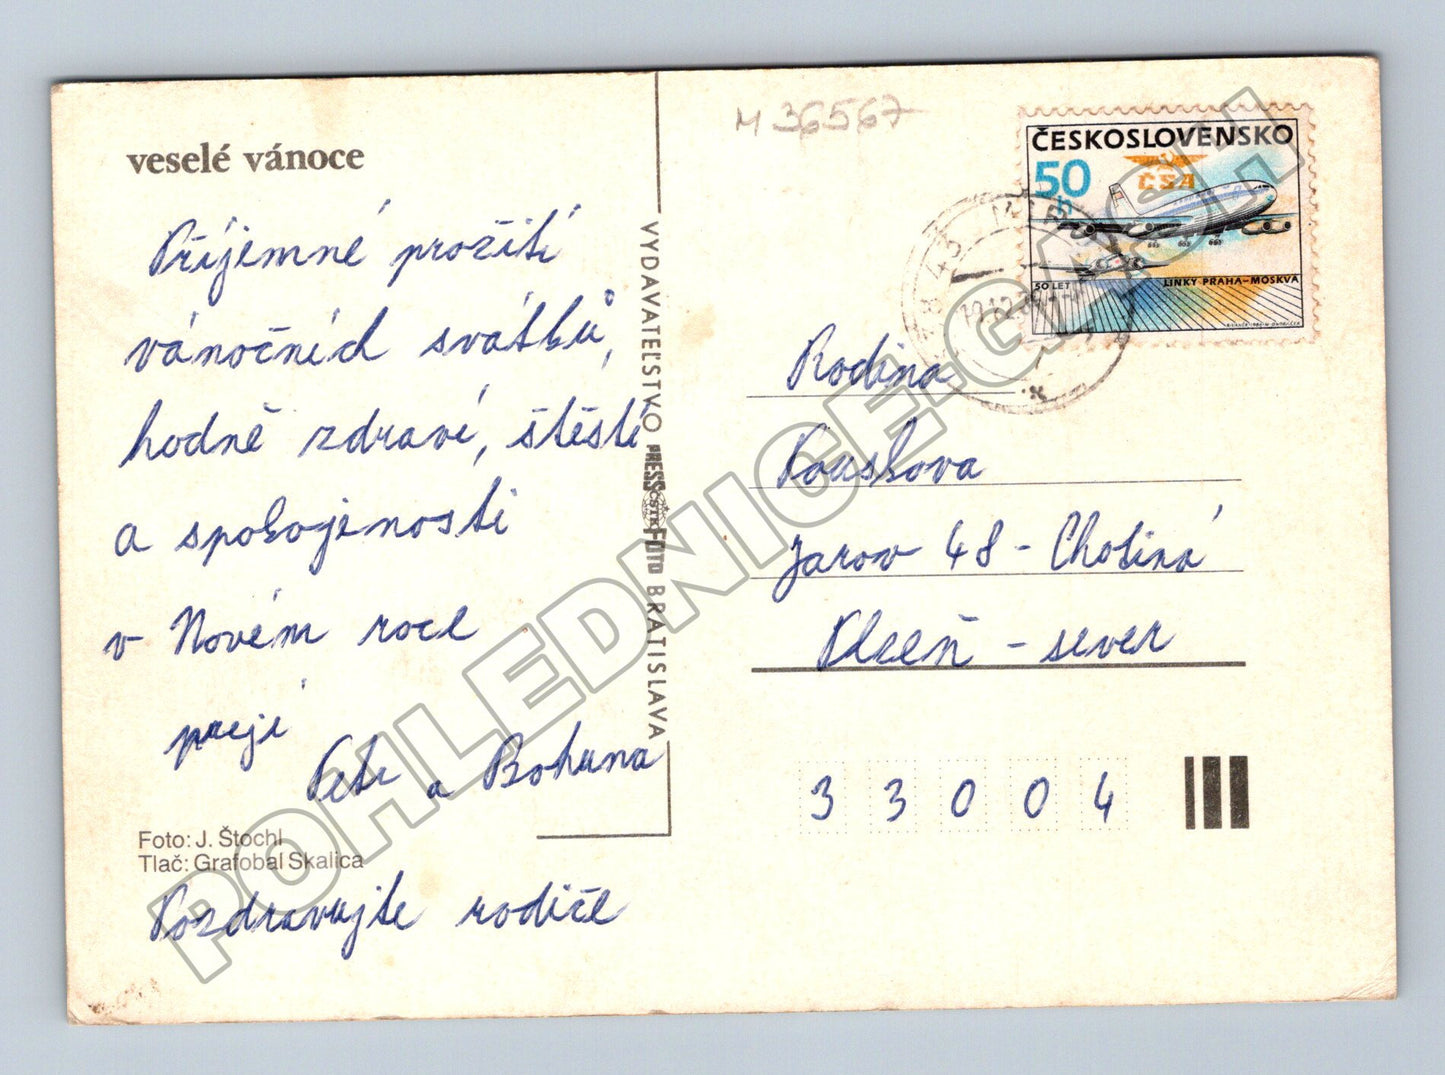 veselé vánoce
Příjemné prožití
vánočních svátků,
hodně zdraví, štěstí
a spokojenosti
v Novém roce
přejí
Petr a Bohuna
Foto: J. Štochl
Tlač: Grafobal Skalica
Pozdravujte rodiče
VYDAVATEĽSTVO PRESSFOTO BRATISLAVA
ČSTK
M 36567
ČESKOSLOVENSKO
50
h
ČSA
50 LET
LINKY PRAHA-MOSKVA
Rodina
Kouskova
Jarov 48 - Chotiná
Plzeň - sever
33004
POHLEDNICE.CASH